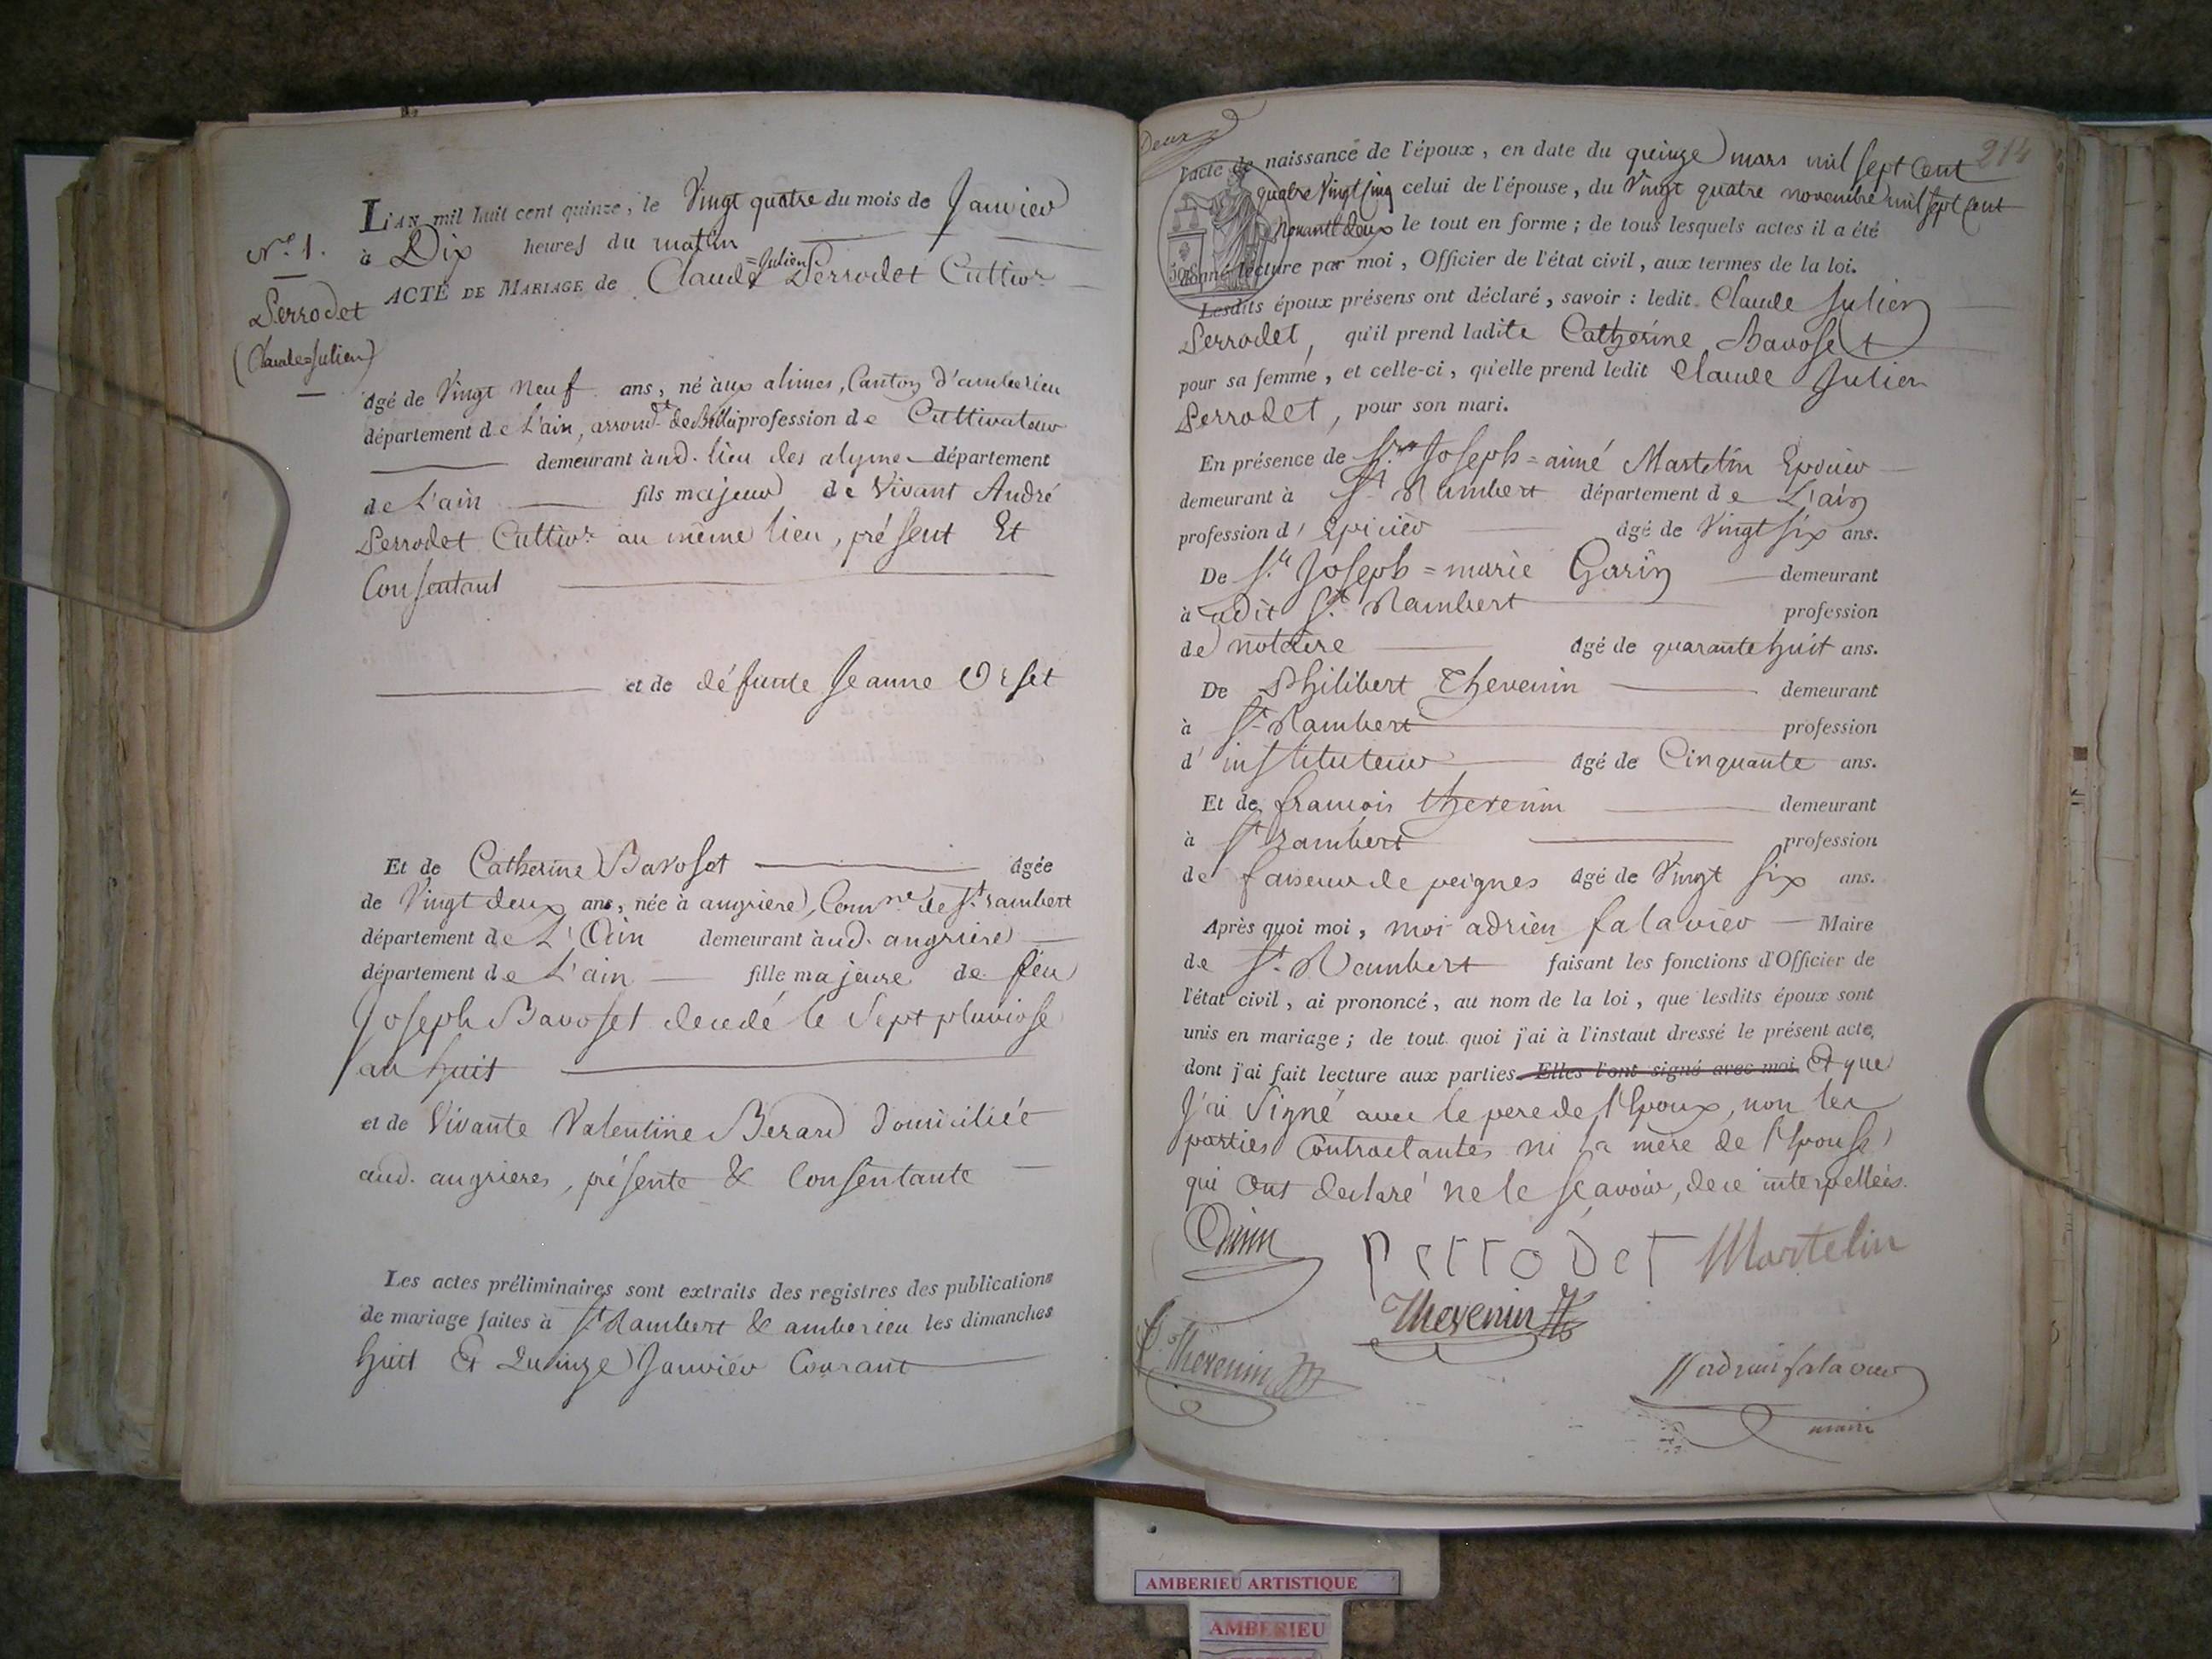 N.o 1.
Perrodet
(Claude=Julien)
L'AN mil huit cent quinze, le Vingt quatre du mois de Janvier
à Dix heures du matin
ACTE DE MARIAGE de Claude =Julien Perrodet Cultivr.
âgé de Vingt Neuf ans, né aux alimes, Canton d'amberieu
département de L'ain, arrondt. de Belley profession de Cultivateur
demeurant àud. lieu des alymes département
de L'ain fils majeur de Vivant André
Perrodet Cultivr. au même lieu, présent Et
Consentant
et de défunte Jeanne Orset
Et de Catherine Bavoset âgée
de Vingt deux ans, née à angriere, Comne. de St. rambert
département de L'Ain demeurant àud. angriere
département de L'ain fille majeure de feu
Joseph Bavoset decedé le Sept pluviose
an huit
et de Vivante Valentine Berard Domiciliée
aud. angrieres, présente & Consentante
Les actes préliminaires sont extraits des registres des publications
de mariage faites à St. Rambert & amberieu les dimanches
huit Et Quinze Janvier Courant
Deux
214
l'acte de naissance de l'époux, en date du quinze mars mil Sept Cent
quatre Vingt Cinq celui de l'épouse, du Vingt quatre novembre mil Sept Cent
Nonante deux le tout en forme ; de tous lesquels actes il a été
donné lecture par moi, Officier de l'état civil, aux termes de la loi.
Lesdits époux présens ont déclaré, savoir : ledit Claude Julien
Perrodet, qu'il prend ladite Catherine Bavoset
pour sa femme, et celle-ci, qu'elle prend ledit Claude Julien
Perrodet, pour son mari.
En présence de Sr. Joseph=aimé Martelin Epicier
demeurant à St. Rambert département de L'ain
profession d'Epicier âgé de Vingt Six ans.
De Sr. Joseph=marie Garin demeurant
à udit St. Rambert profession
de notaire âgé de quarante huit ans.
De Philibert Thevenin demeurant
à St. Rambert profession
d'instituteur âgé de Cinquante ans.
Et de francois thevenin demeurant
à St. rambert profession
de faiseur de peignes âgé de Vingt Six ans.
Après quoi moi, moi adrien falavier Maire
de St. Rambert faisant les fonctions d'Officier de
l'état civil, ai prononcé, au nom de la loi, que lesdits époux sont
unis en mariage ; de tout quoi j'ai à l'instant dressé le présent acte,
dont j'ai fait lecture aux parties. Elles l'ont signé avec moi. Et que
J'ai Signé avec le pere de l'Epoux, non les
parties Contractantes ni la mère de l'Epouse
qui Ont declaré ne le Sçavoir, de ce interpellées.
Garin Perrodet Martelin
Thevenin
Thevenin
adrien falavier
maire
AMBERIEU ARTISTIQUE
AMBERIEU